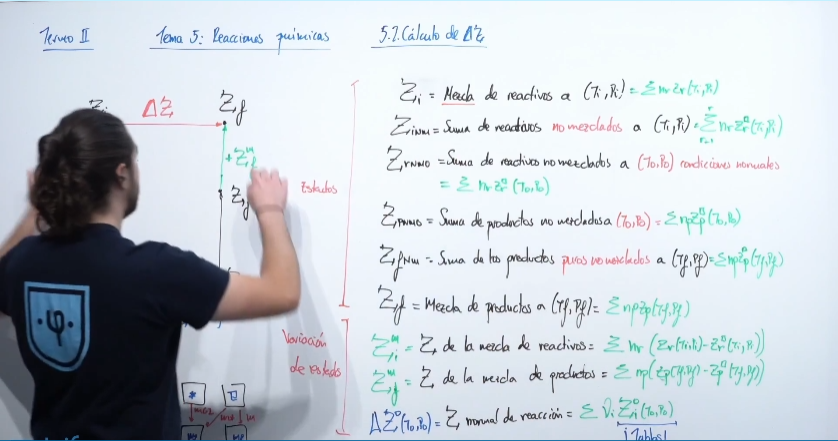 Termo II
Tema 5: Reacciones químicas
5.2. Cálculo de ΔZ
ΔZ
Z_f
+ Z_f^m
Estados
Z_i = Mezcla de reactivos a (T_i, P_i) = Σ n_r z_r (T_i, P_i)
Z_iNM = Suma de reactivos no mezclados a (T_i, P_i) = Σ n_r z_r^0 (T_i, P_i)
Z_rNM0 = Suma de reactivos no mezclados a (T_0, P_0) condiciones normales
= Σ n_r z_r^0 (T_0, P_0)
Z_PNM0 = Suma de productos no mezclados a (T_0, P_0) = Σ n_p z_p^0 (T_0, P_0)
Z_fNM = Suma de los productos puros no mezclados a (T_f, P_f) = Σ n_p z_p^0 (T_f, P_f)
Z_f = Mezcla de productos a (T_f, P_f) = Σ n_p z_p (T_f, P_f)
Variación
de estado
Z_i^m = Z de la mezcla de reactivos = Σ n_r (z_r (T_i, P_i) - z_r^0 (T_i, P_i))
Z_f^m = Z de la mezcla de productos = Σ n_p (z_p (T_f, P_f) - z_p^0 (T_f, P_f))
ΔZ^0 (T_0, P_0) = Z normal de reacción = Σ ν_i Z_i^0 (T_0, P_0)
¡Tablas!